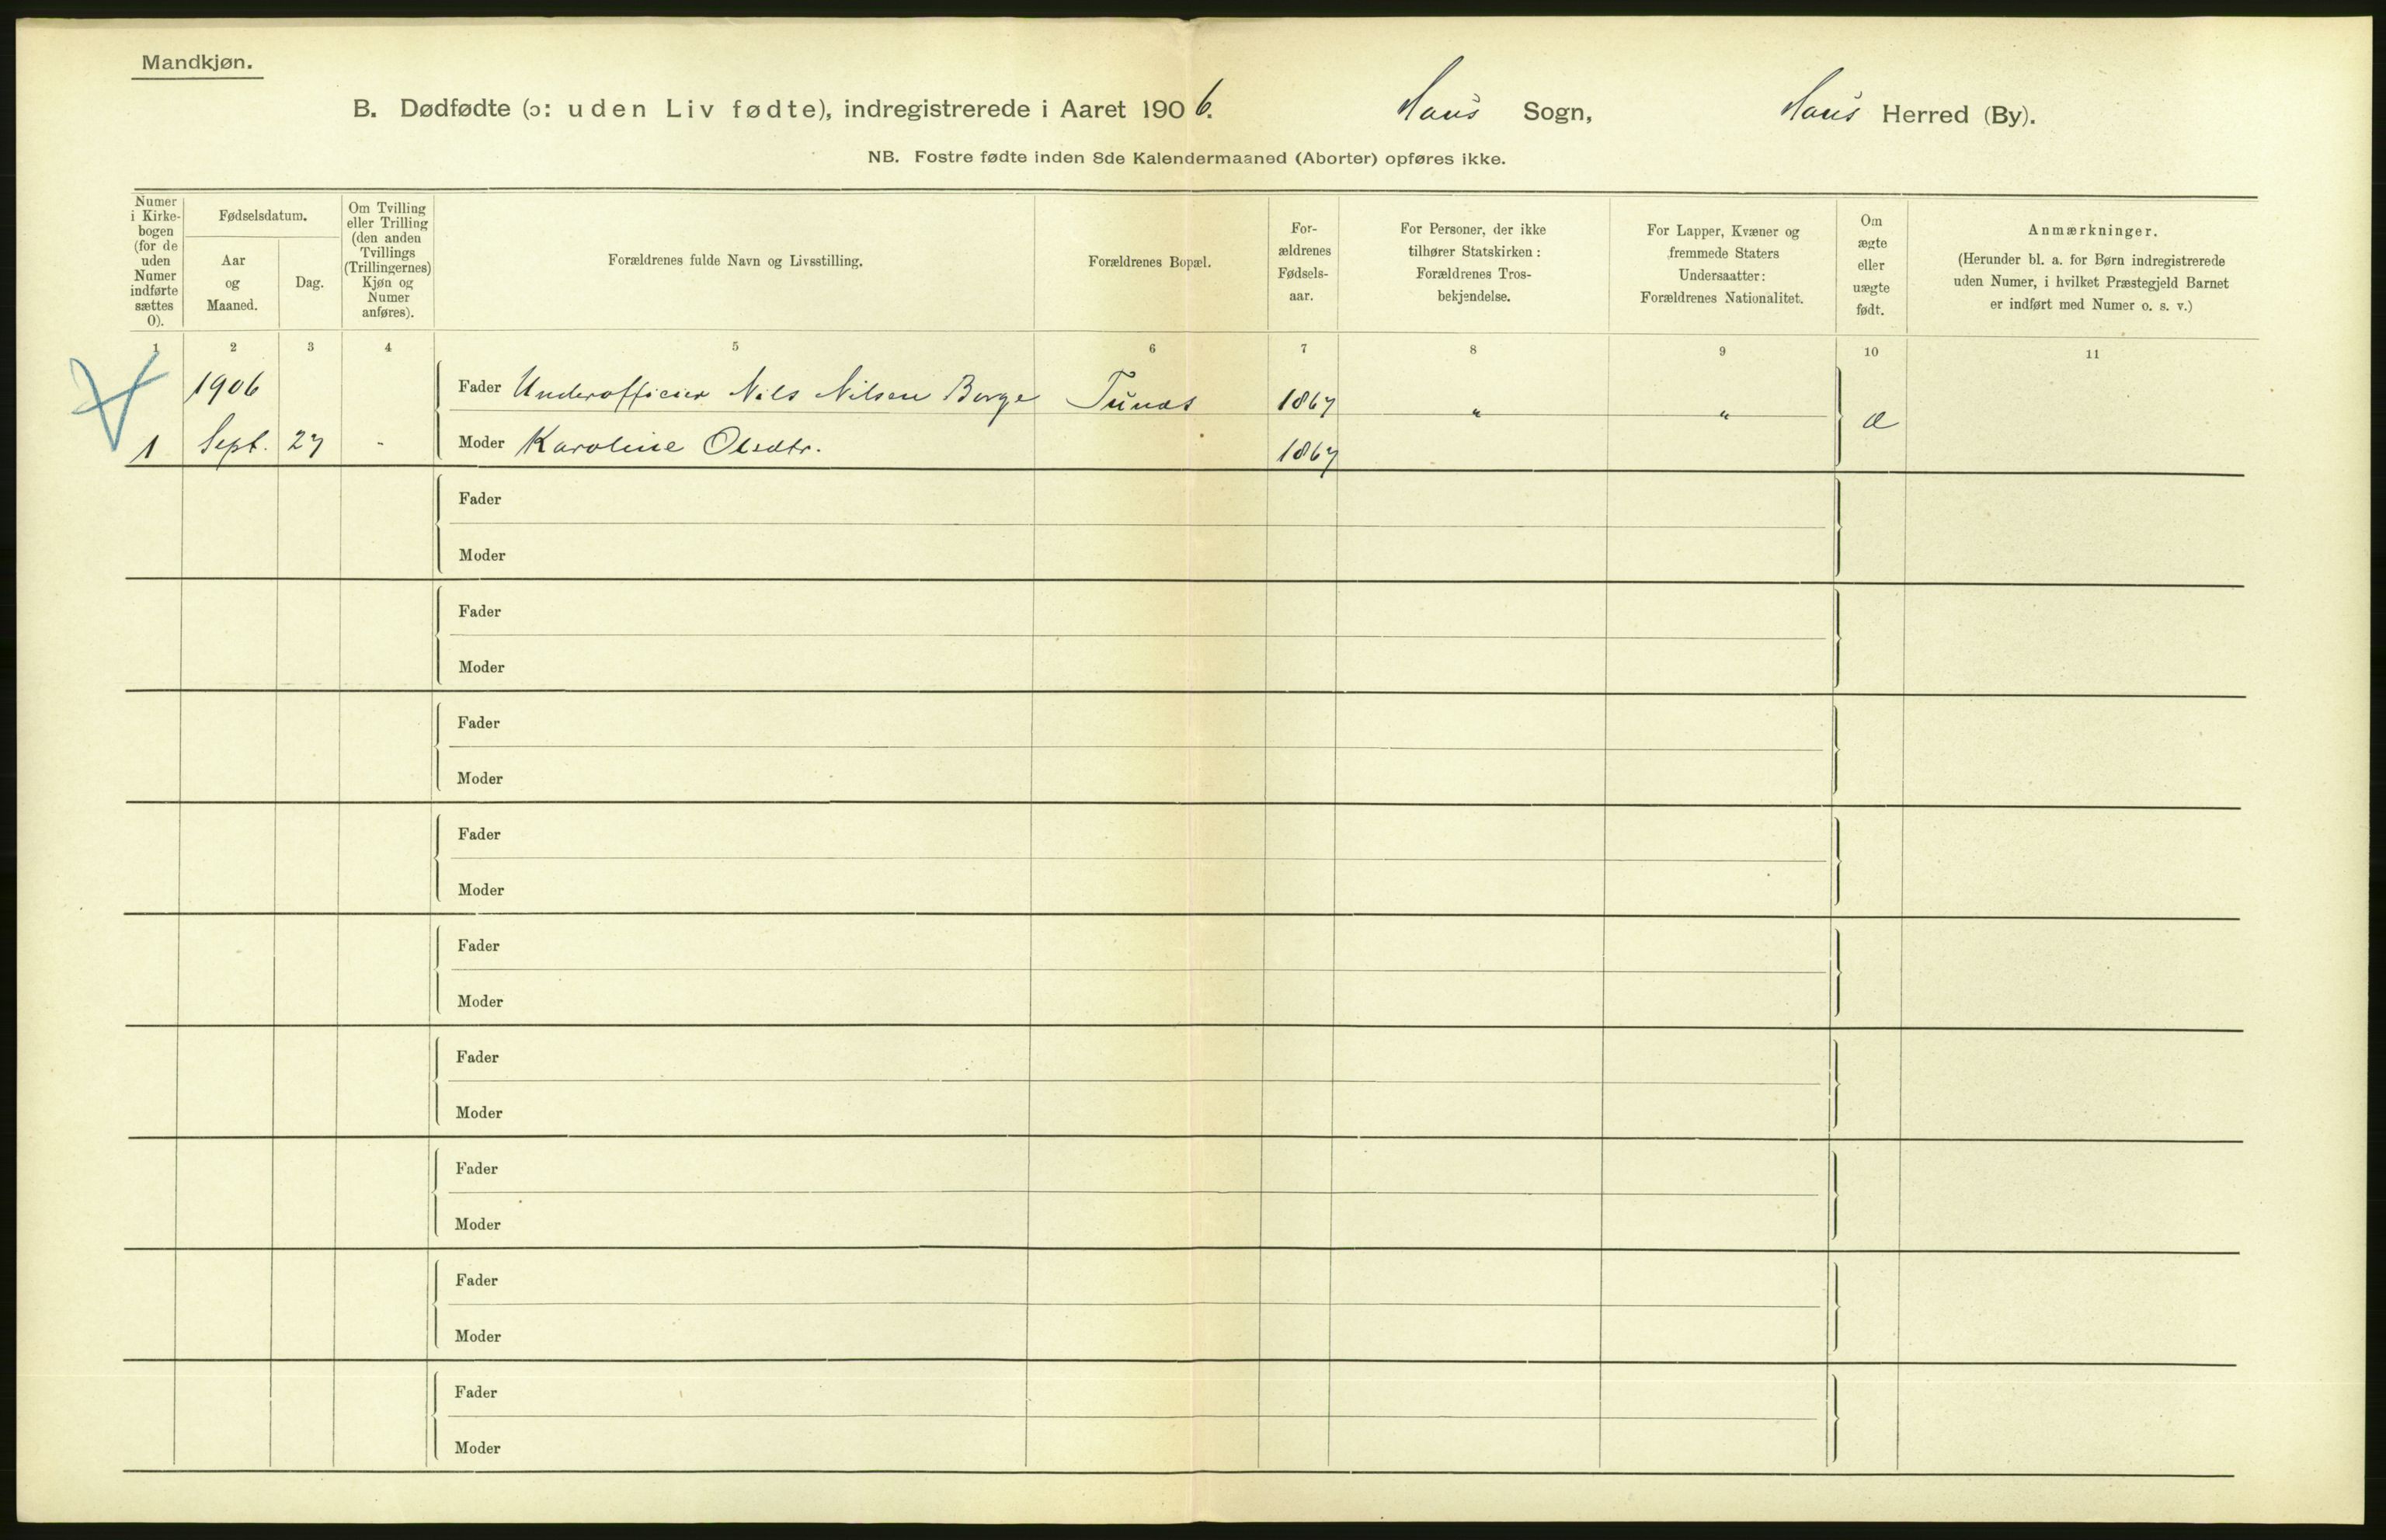 Mandkjøn.
B. Dødfødte (ɔ: uden Liv fødte), indregistrerede i Aaret 1906. Haus Sogn, Haus Herred (By).
NB. Fostre fødte inden 8de Kalendermaaned (Aborter) opføres ikke.
Numer i Kirke-bogen (for de uden Numer indførte sættes 0).
Fødselsdatum.
Aar og Maaned.
Dag.
Om Tvilling eller Trilling (den anden Tvillings (Trillingernes) Kjøn og Numer anføres).
Forældrenes fulde Navn og Livsstilling.
Forældrenes Bopæl.
For-ældrenes Fødsels-aar.
For Personer, der ikke tilhører Statskirken: Forældrenes Tros-bekjendelse.
For Lapper, Kvæner og fremmede Staters Undersaatter: Forældrenes Nationalitet.
Om ægte eller uægte født.
Anmærkninger.
(Herunder bl. a. for Børn indregistrerede uden Numer, i hvilket Præstegjeld Barnet er indført med Numer o. s. v.)
1 2 3 4 5 6 7 8 9 10 11
1906 Fader Underofficier Nils Nilsen Borge Tunæs 1867 " " æ
1 Sept. 27 - Moder Karoline Olsdtr. 1867
Fader
Moder
Fader
Moder
Fader
Moder
Fader
Moder
Fader
Moder
Fader
Moder
Fader
Moder
Fader
Moder
Fader
Moder